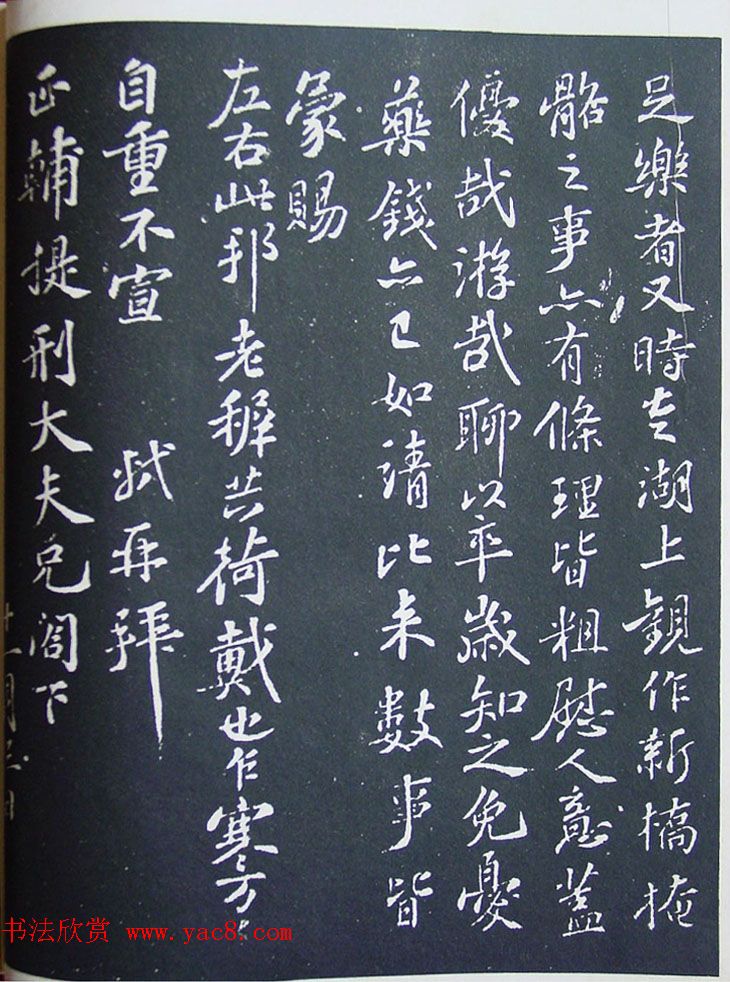 足樂者又時走湖上觀作新橋掩
骼之事亦有條理皆粗慰人意蓋
優哉游哉聊以卒歲知之免憂
藥錢亦已如請比來數事皆
蒙賜
左右此邦老稺共荷戴也乍寒万〻
自重不宣 軾再拜
正輔提刑大夫兄閤下
十一月 日
书法欣赏 www.yac8.com